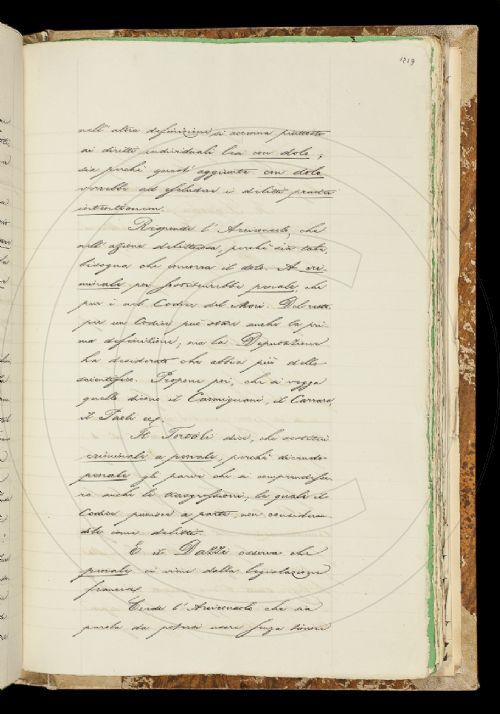 1213
nell'altra definizione si accenna piuttosto
ai diritti individuali lesi con dolo,
sia perchè quest'aggiunta con dolo
vorrebbe ad escludere i delitti praeter
intentionem.
Risponde l'Arcivescovo, che
nell'azione delittuosa, perchè sia tale,
bisogna che concorra il dolo. A cri-
minale poi sostituirebbe penale, che
pur è nel Codice del Mori. Del resto
per un Codice può star anche la pri-
ma definizione, ma la Deputazione
ha desiderato che abbia più dello
scientifico. Propone poi, che si vegga
quello dicono il Carmignani, il Carrara,
il Paoli ecc.
Il Torcoli dice, che sostituì
criminale a penale, perchè dicendo
penale gli parve che si comprendesse-
ro anche le trasgressioni, le quali il
Codice punisce a parte, non consideran-
dole come delitto.
E il Dazzi osserva che
penale ci viene dalla legislazione
francese.
Crede l'Arcivescovo che sia
parola da potersi usare senza timore